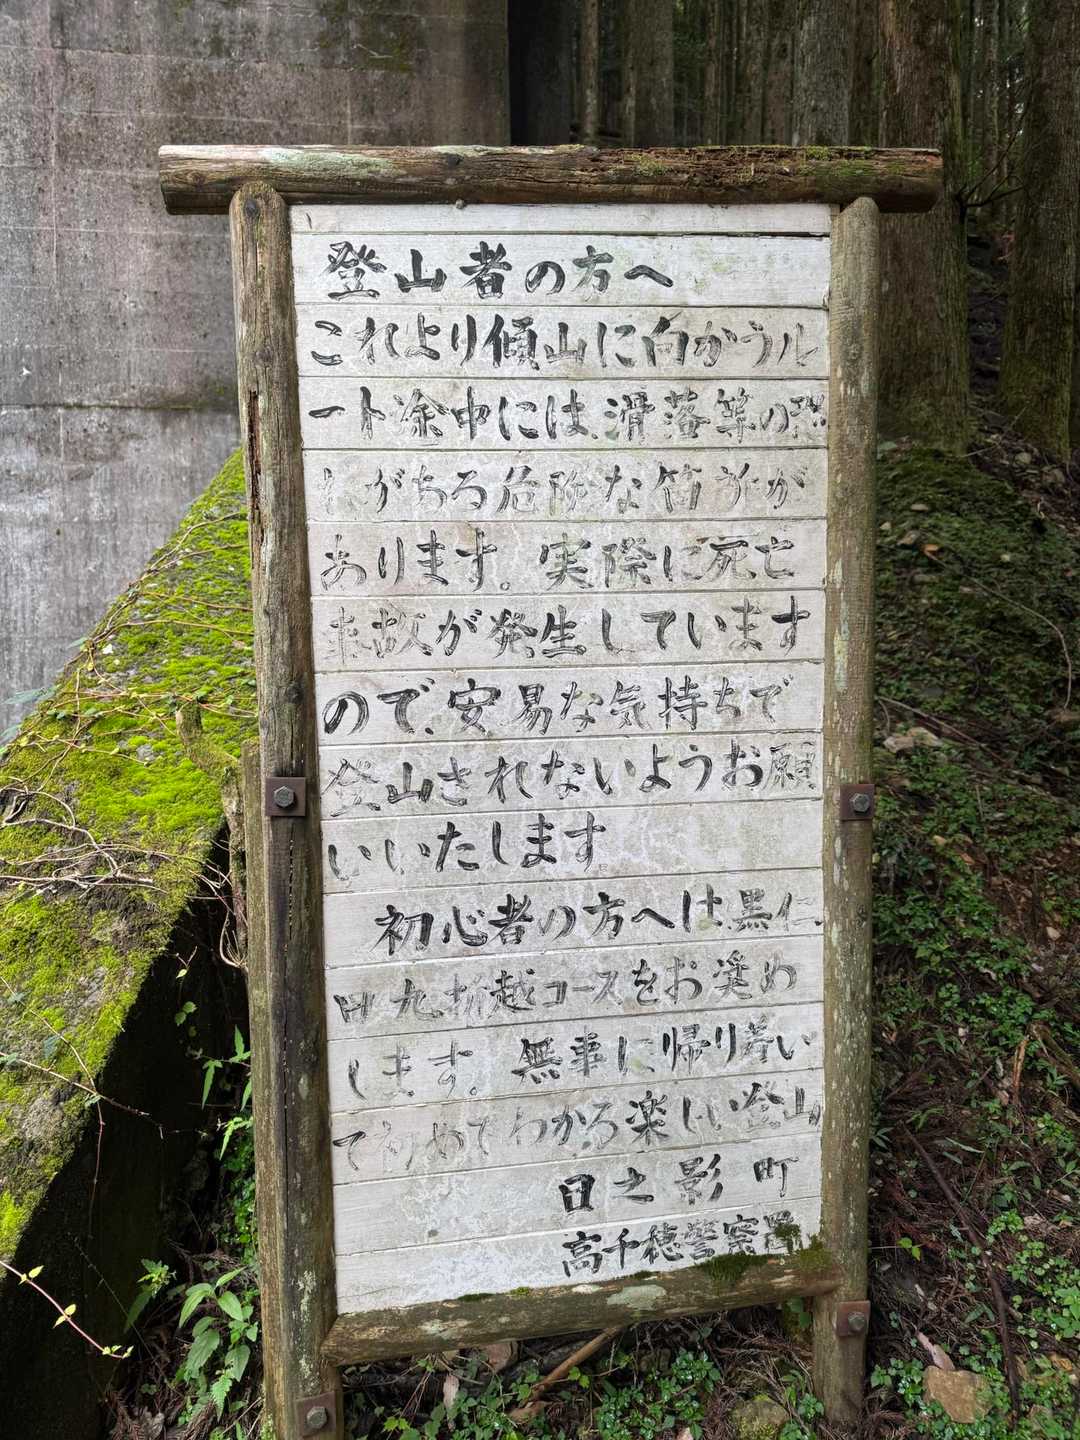 登山者の方へ
これより傾山に向かうル
ート途中には、滑落等の恐
れがある危険な箇所が
あります。実際に死亡
事故が発生しています
ので、安易な気持ちで
登山されないようお願
いいたします
初心者の方へは、黒仁
田九折越コースをお奨め
します。無事に帰り着い
て初めてわかる楽しい登山
日之影町
高千穂警察署